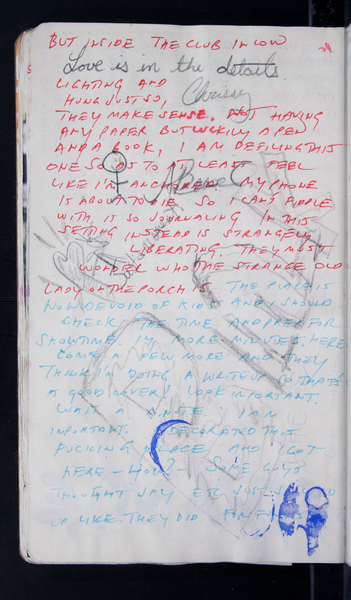 BUT INSIDE THE CLUB IN LOW
Love is in the details.
LIGHTING AND
HUNG JUST SO,
Chrissy
THEY MAKE SENSE. NOT HAVING
ANY PAPER BUT LUCKILY A PEN
AND A BOOK, I AM DEFILING THIS
ONE SO AS TO AT LEAST FEEL
LIKE I'M ANCHORED. MY PHONE
IS ABOUT TO DIE SO I CAN'T FIDDLE
WITH IT SO JOURNALING IN THIS
SETTING INSTEAD IS STRANGELY
LIBERATING. THEY MUST
WONDER WHO THE STRANGE OLD
LADY ON THE PORCH IS. THE PLACE IS
NOW DEVOID OF KIDS AND I SHOULD
CHECK THE TIME AND PREP FOR
SHOWTIME. 14 MORE MINUTES. HERE
COME A FEW MORE AND THEY
THINK I'M DOING A WRITEUP SO THAT'S
A GOOD COVER. I LOOK IMPORTANT.
WAIT A MINUTE. I AM
IMPORTANT. I DECORATED THIS
FUCKING PLACE AND I GOT
HERE – HOW? SOME GUYS
THOUGHT JAY ETC JUST
UP LIKE THEY DID FOR